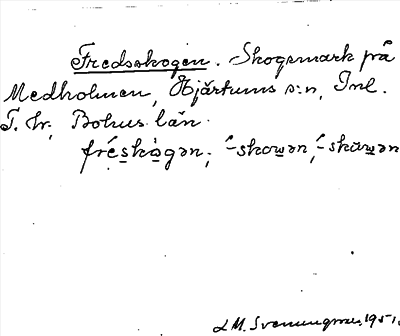 Fredsskogen. Skogsmark på
Medholmen, Hjärtums s:n, Inl.
T. hr, Bohus län.
fréskògən; ´-skowən, ´-skäwən
L M. Svenungsson, 1951.